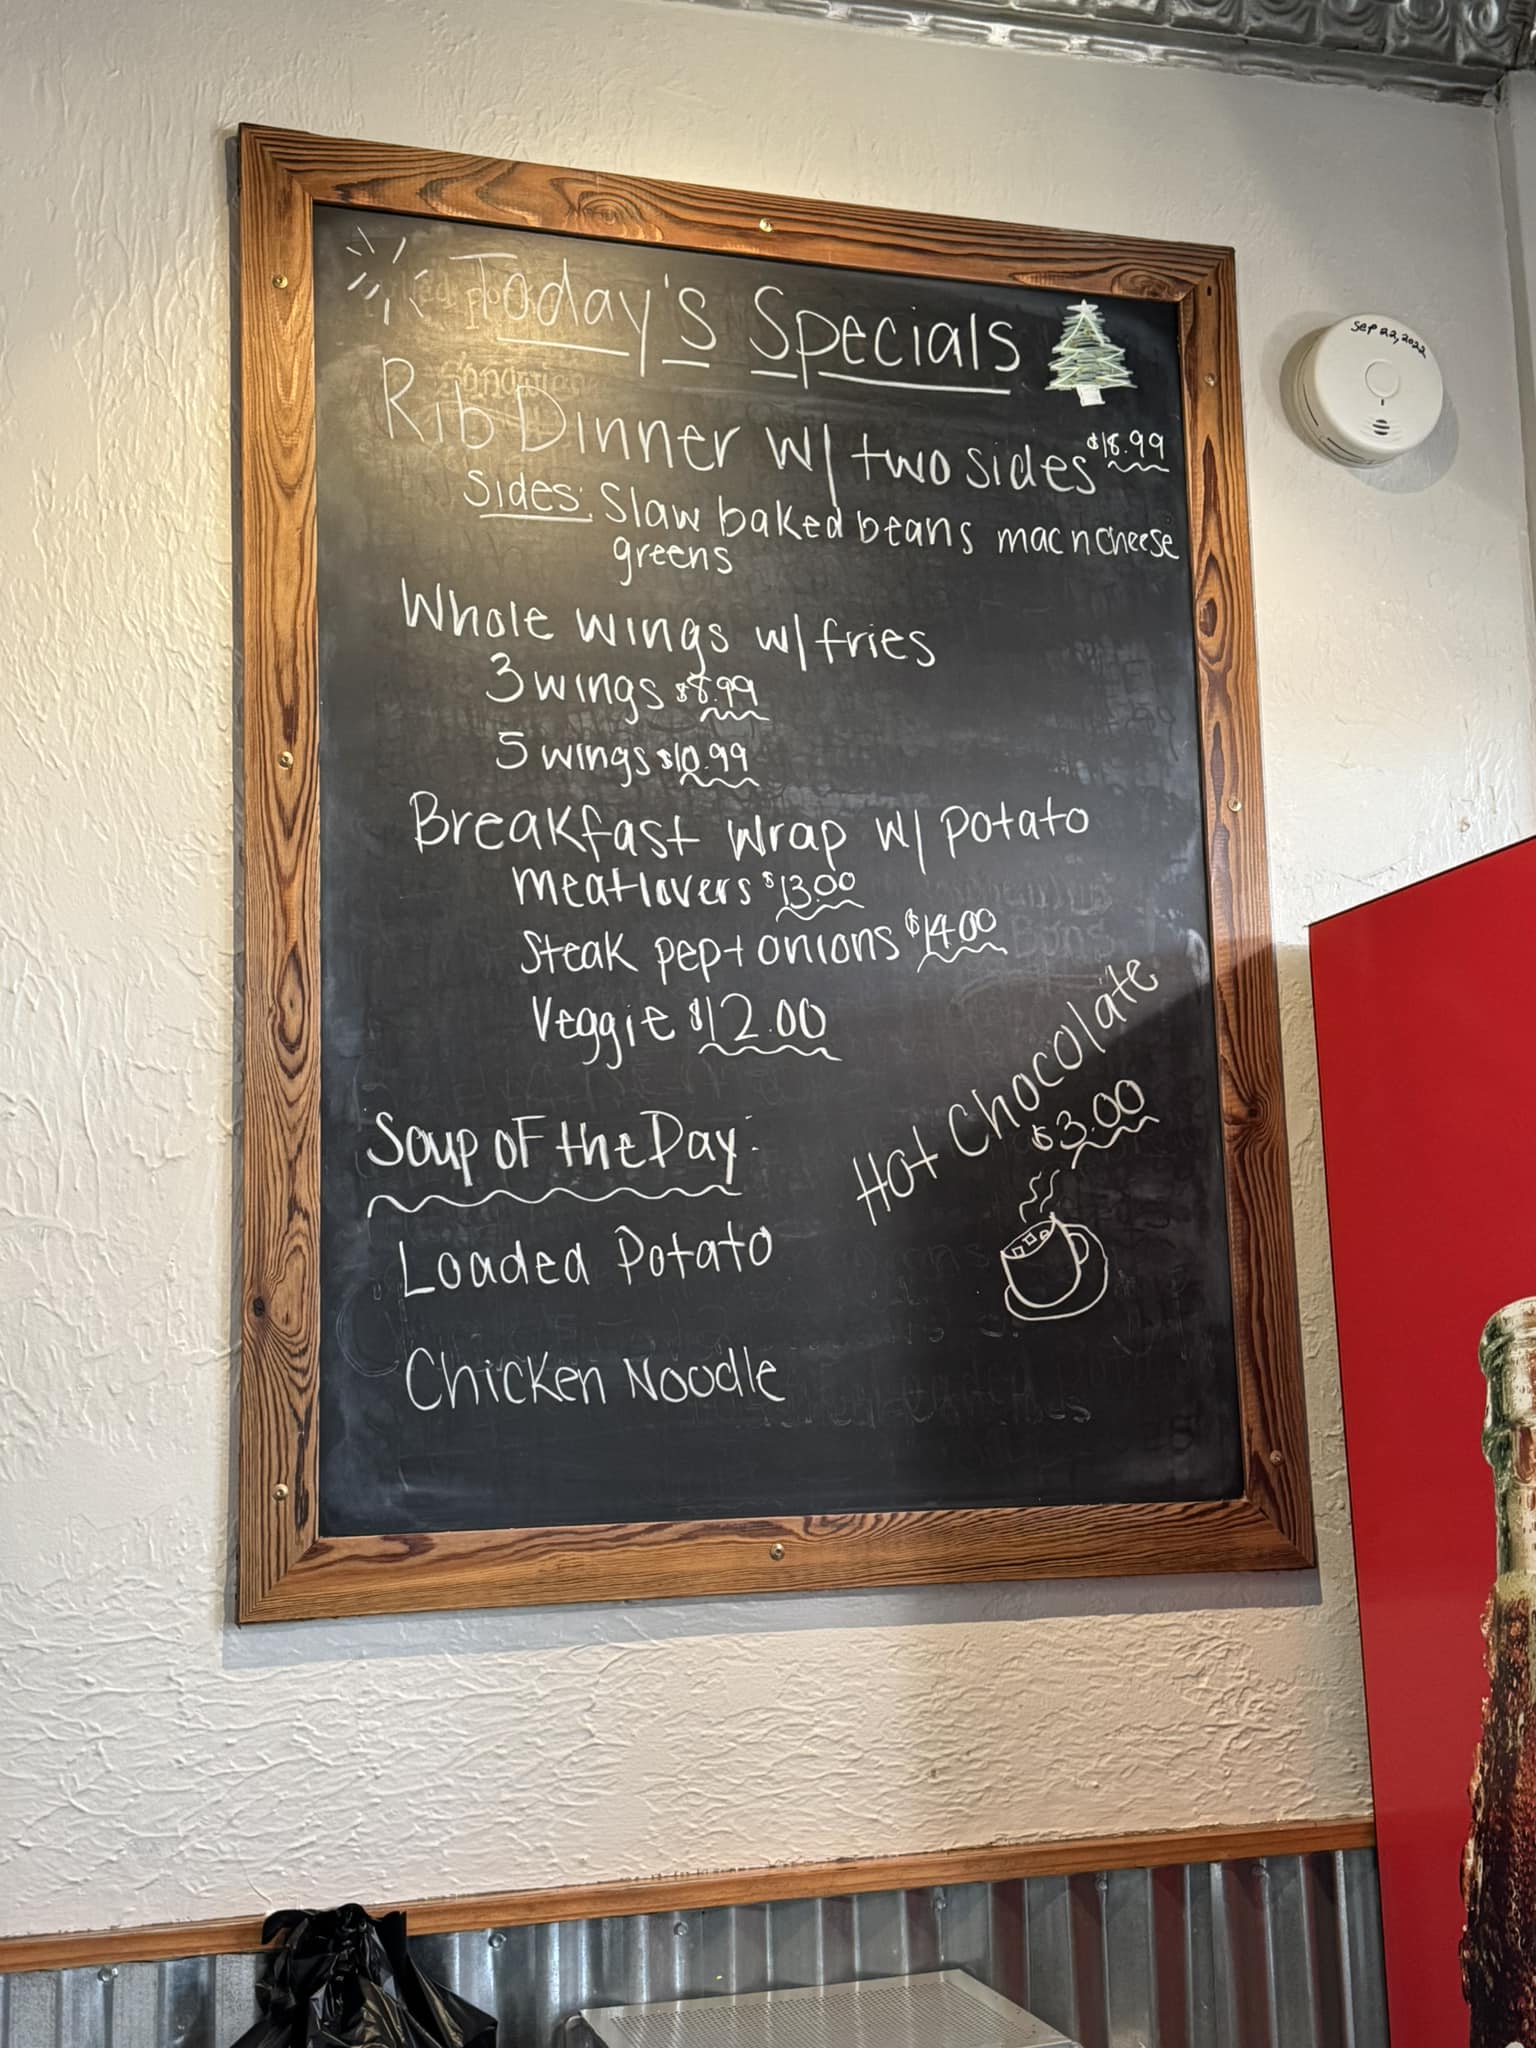 Today's Specials
Rib Dinner w/ two sides $18.99
Sides: Slaw baked beans mac n cheese
greens
Whole wings w/ fries
3 wings $8.99
5 wings $10.99
Breakfast wrap w/ potato
meatlovers $13.00
Steak pep + onions $14.00
Veggie $12.00
Hot Chocolate
$3.00
Soup of the Day:
Loaded Potato
Chicken Noodle
Sep 22, 2022